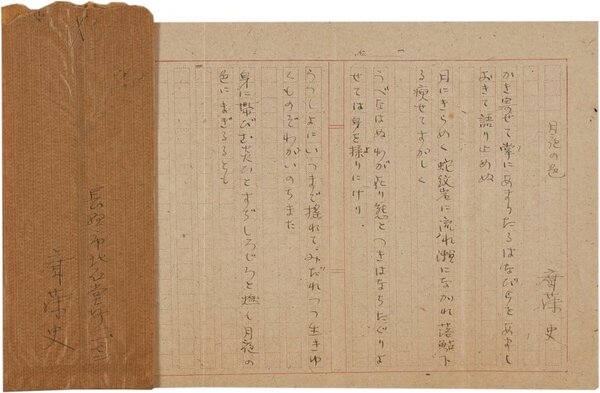 月夜の色
斎藤史
かき寄せて掌にあまりたるはなびらをあまし
おきて語り止めぬ
月にきらめく蛇紋岩に流れ瀬になかれ落鮎下
る痩せてすがしく
うべなはぬわが在り態とつきはなちたぐりよ
せては身を揉りにけり
うつしよにいつまで揺れてみだれつつ生きゆ
くものぞわがいのちまた
身に帯びむ炎ひとすぢしろじろと燃し月夜の
色にまぎるるとも
長野市北石堂町
斎藤史